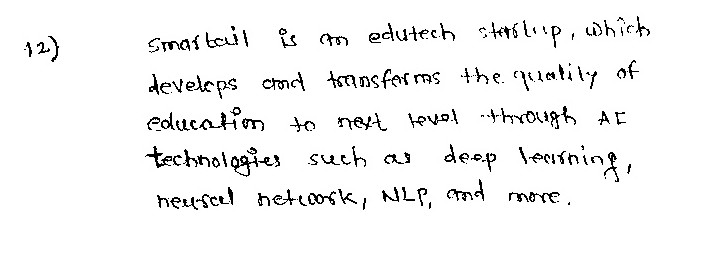 12) Smartail is an edutech startup, which
develops and transforms the quality of
education to next level through AI
technologies such as deep learning,
neural network, NLP, and more.